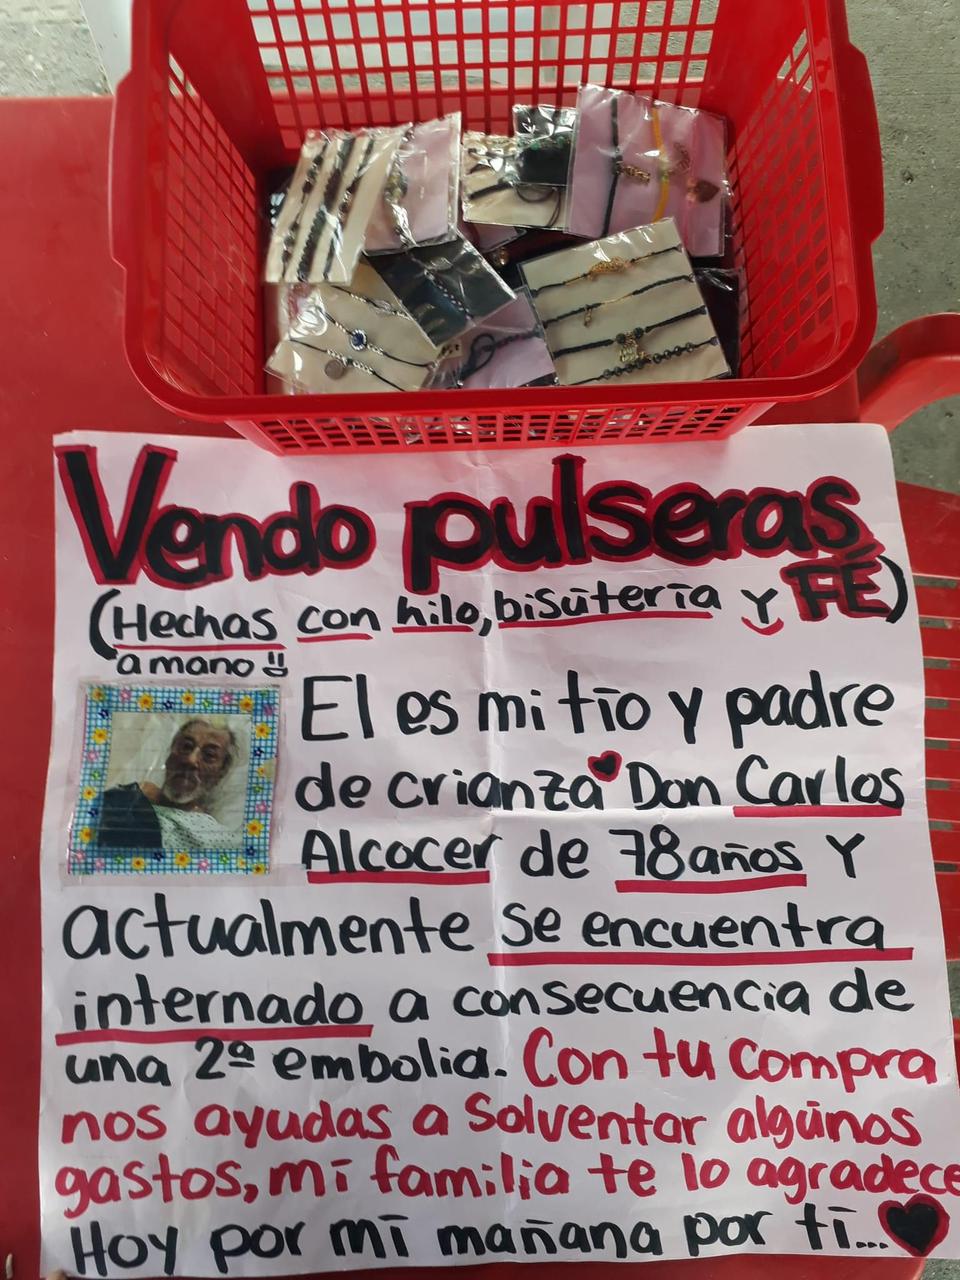 Vendo pulseras
(Hechas con hilo, bisútería y FÉ)
a mano
El es mi tío y padre
de crianza Don Carlos
Alcocer de 78 años y
actualmente se encuentra
internado a consecuencia de
una 2ª embolia. Con tu compra
nos ayudas a solventar algúnos
gastos, mi familia te lo agradece
Hoy por mí mañana por tí...